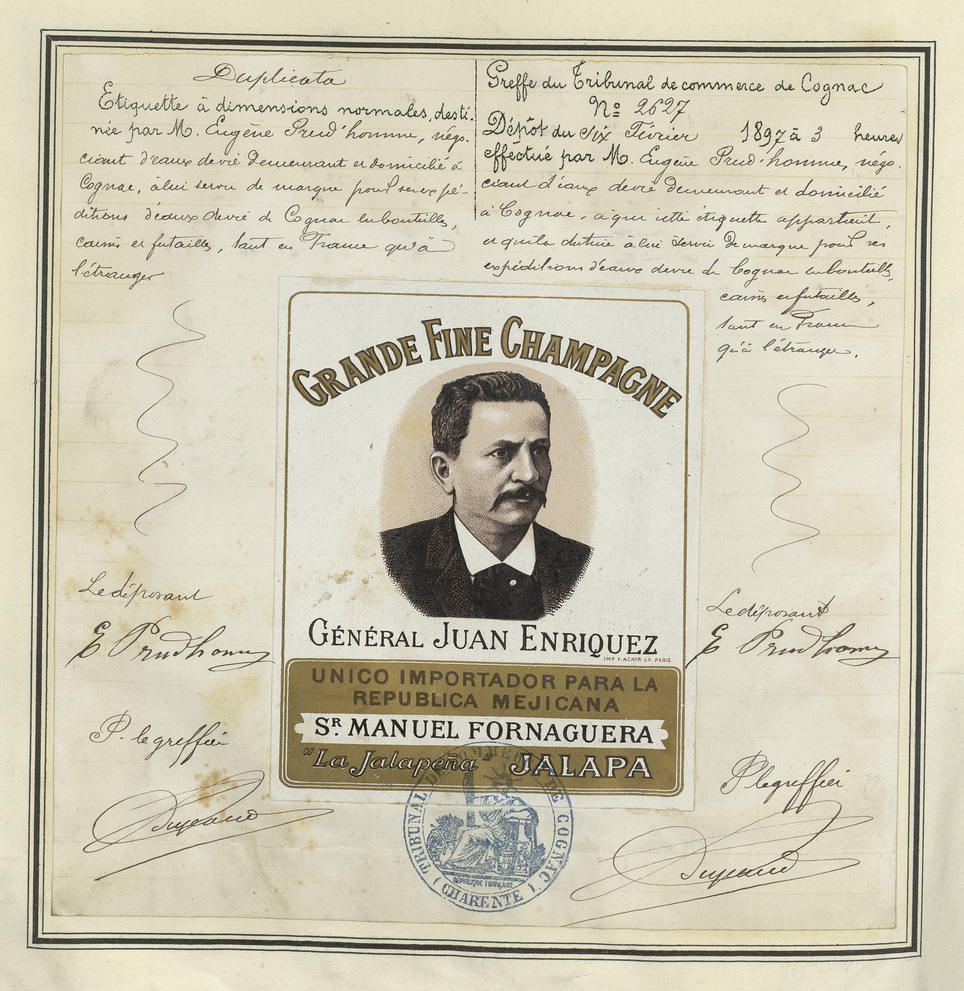 Duplicata
Etiquette à dimensions normales, desti-
née par M. Eugène Prud'homme, négo-
ciant d'eaux de vie demeurant et domicilié à
Cognac, à lui servir de marque pour ses expé-
ditions d'eaux de vie de Cognac en bouteilles,
caisses et futailles, tant en France qu'à
l'étranger
Greffe du Tribunal de commerce de Cognac
No 2627
Dépôt du six Février 1897 à 3 heures
effectué par M. Eugène Prud'homme, négo-
ciant d'eaux de vie demeurant et domicilié
à Cognac, à qui cette étiquette appartient,
et qu'il destine à lui servir de marque pour ses
expéditions d'eaux de vie de Cognac en bouteilles,
caisses et futailles,
tant en France
qu'à l'étranger.
GRANDE FINE CHAMPAGNE
GÉNÉRAL JUAN ENRIQUEZ
IMP. F. ACKER GR. PARIS
UNICO IMPORTADOR PARA LA
REPUBLICA MEJICANA
SR. MANUEL FORNAGUERA
"La Jalapeña" JALAPA
Le déposant
E Prudhomme
P. le greffier
Le déposant
E Prudhomme
P le greffier
TRIBUNAL DE COMMERCE DE COGNAC
REPUBLIQUE FRANÇAISE
(CHARENTE)